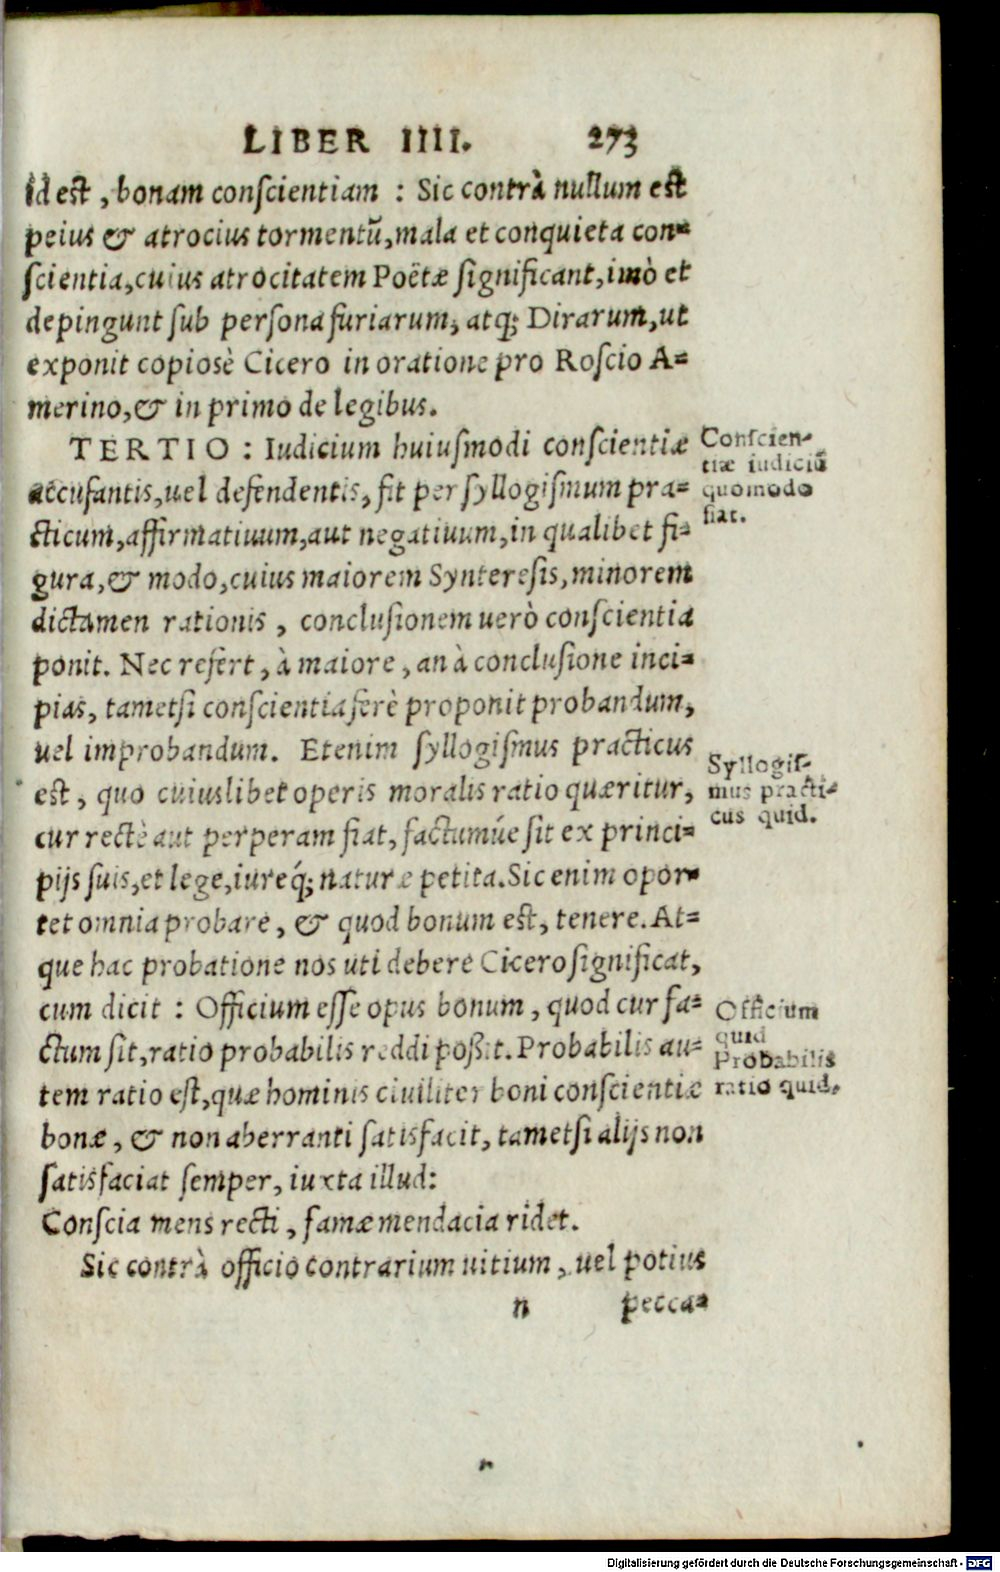 LIBER IIII. 273
id est, bonam conſcientiam : Sic contrà nullum est
peius & atrocius tormentũ, mala et conquieta con-
ſcientia, cuius atrocitatem Poëtæ ſignificant, imò et
depingunt ſub perſona furiarum, atq́; Dirarum, ut
exponit copiosè Cicero in oratione pro Roſcio A-
merino, & in primo de legibus.
TERTIO : Iudicium huiuſmodi conſcientiæ
accuſantis, uel defendentis, fit per ſyllogiſmum pra-
cticum, affirmatiuum, aut negatiuum, in qualibet fi-
gura, & modo, cuius maiorem Synteresis, minorem
dictamen rationis, concluſionem uerò conſcientia
ponit. Nec refert, à maiore, an à concluſione inci-
pias, tametſi conſcientia ferè proponit probandum,
uel improbandum. Etenim ſyllogiſmus practicus
est, quo cuiuslibet operis moralis ratio quæritur,
cur rectè aut perperam fiat, factumúe sit ex princi-
pijs ſuis, et lege, iureq́; naturæ petita. Sic enim opor-
tet omnia probare, & quod bonum est, tenere. At-
que hac probatione nos uti debere Cicero ſignificat,
cum dicit : Officium eſſe opus bonum, quod cur fa-
ctum sit, ratio probabilis reddi poßit. Probabilis au-
tem ratio est, quæ hominis ciuiliter boni conſcientiæ
bonæ, & non aberranti ſatisfacit, tametſi alijs non
ſatisfaciat ſemper, iuxta illud:
Conſcia mens recti, famæ mendacia ridet.
Sic contrà officio contrarium uitium, uel potius
n pecca-
Conſcien-
tiæ iudiciũ
quomodo
fiat.
Syllogiſ-
mus practi-
cus quid.
Officium
quid
Probabilis
ratio quid.
Digitalisierung gefördert durch die Deutsche Forschungsgemeinschaft - DFG